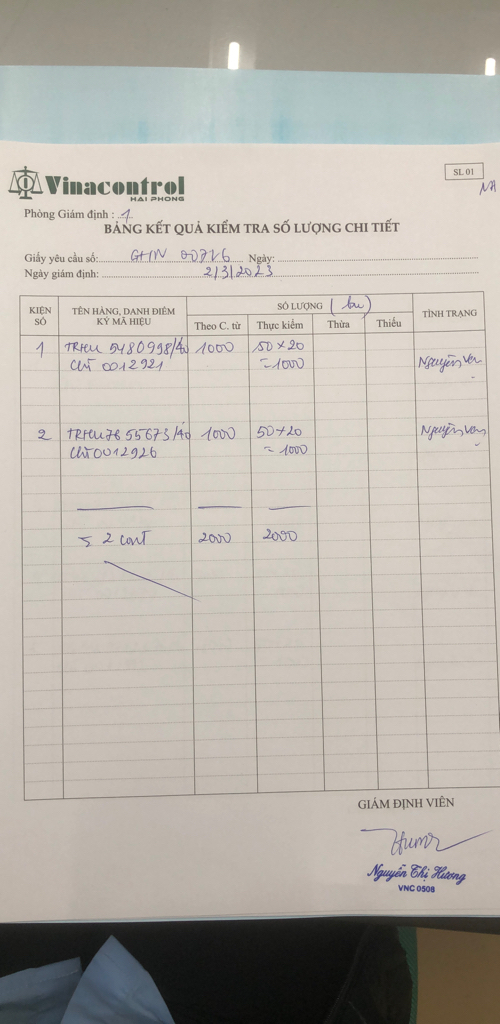 SL 01
NA
Vinacontrol
HAI PHONG
Phòng Giám định : 1
BẢNG KẾT QUẢ KIỂM TRA SỐ LƯỢNG CHI TIẾT
Giấy yêu cầu số: GHN 00726 Ngày:
Ngày giám định: 2/3/2023
KIỆN SỐ TÊN HÀNG, DANH ĐIỂM KÝ MÃ HIỆU SỐ LƯỢNG (bao) TÌNH TRẠNG
Theo C. từ Thực kiểm Thừa Thiếu
1 TRHU 5480998/40 1000 50 x 20
Chì 0012921 = 1000 Nguyên vẹn
2 TRHU 76 55673/40 1000 50 x 20 Nguyên vẹn
Chì 0012926 = 1000
2 cont 2000 2000
GIÁM ĐỊNH VIÊN
Nguyễn Thị Hương
VNC 0508